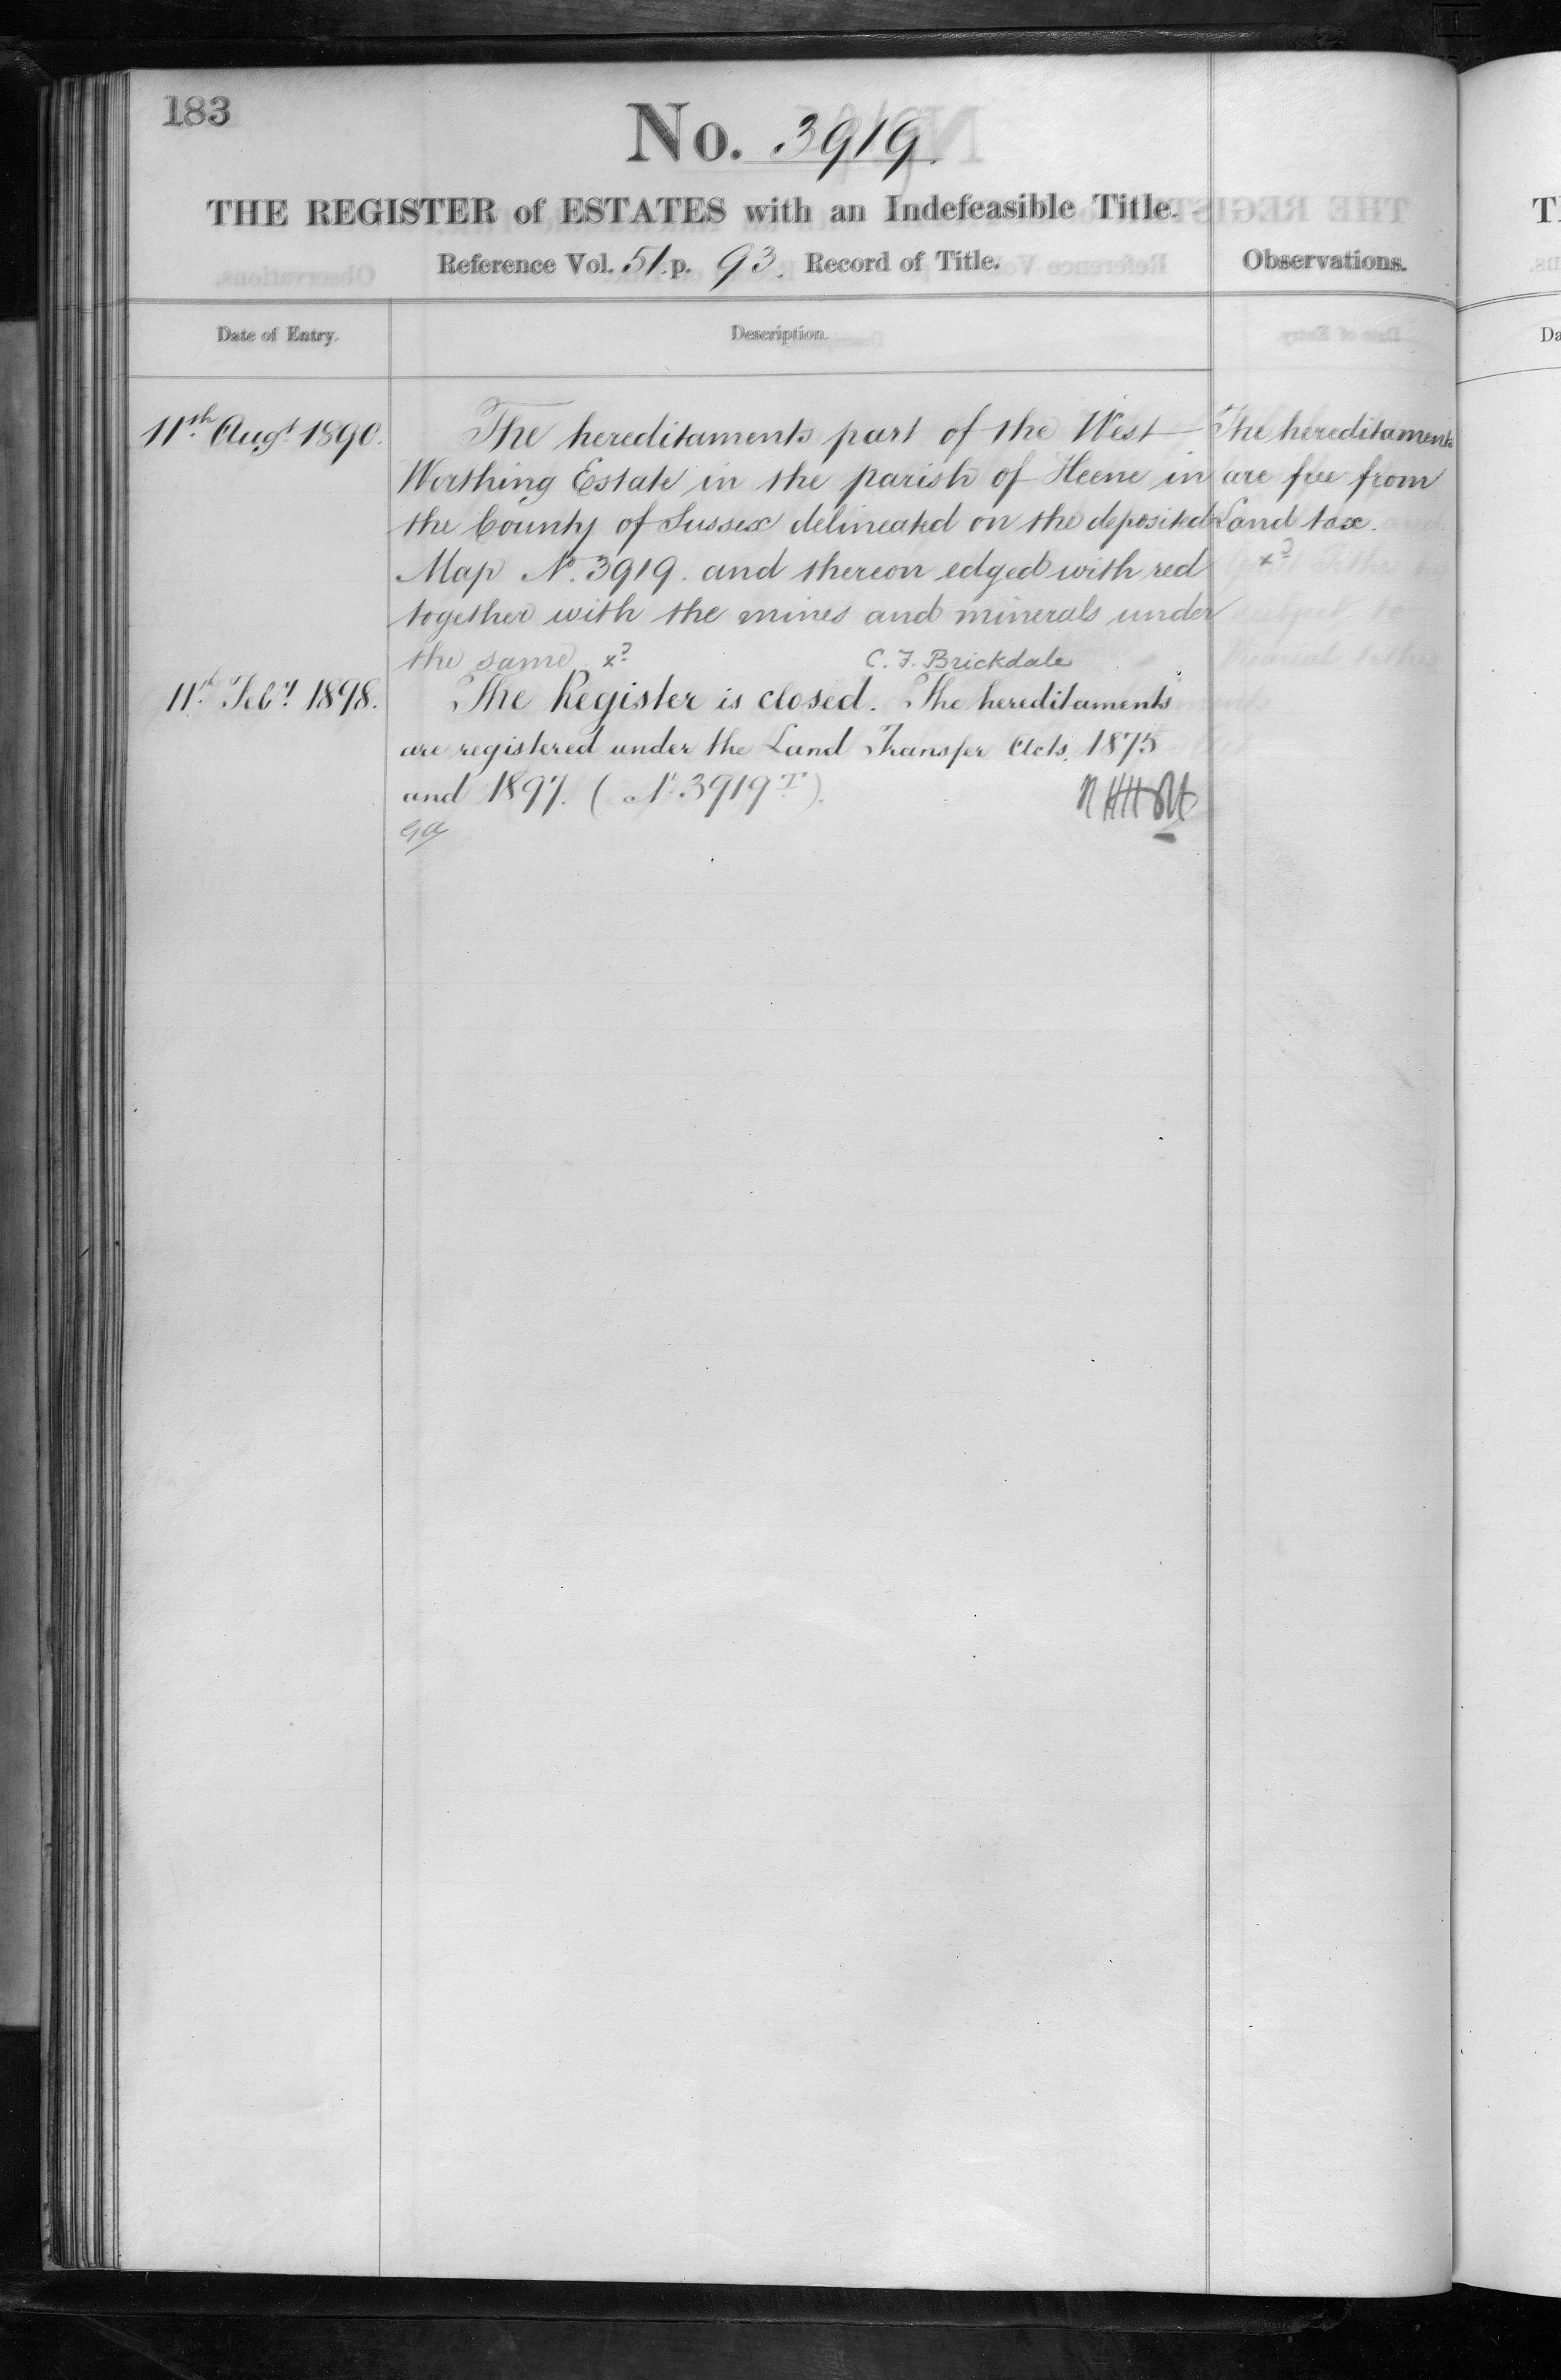 183
No. 3919.
THE REGISTER of ESTATES with an Indefeasible Title.
Reference Vol. 51. p. 93. Record of Title.
Observations.
Date of Entry.
Description.
11th Augt 1890.
The hereditaments part of the West
Worthing Estate in the parish of Heene in
the County of Sussex delineated on the deposited
Map No. 3919. and thereon edged with red
together with the mines and minerals under
the same
C. F. Brickdale
The hereditaments
are free from
Land tax.
11th Feby 1898.
The Register is closed. The hereditaments
are registered under the Land Transfer Acts, 1875
and 1897. (No. 3919 T).